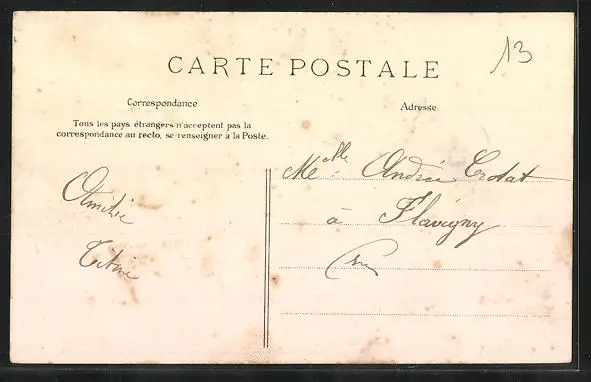 13
CARTE POSTALE
Correspondance
Adresse
Tous les pays étrangers n'acceptent pas la
correspondance au recto, se renseigner à la Poste.
Melle Andrée Crotat
à Flavigny
Amitié
Titine